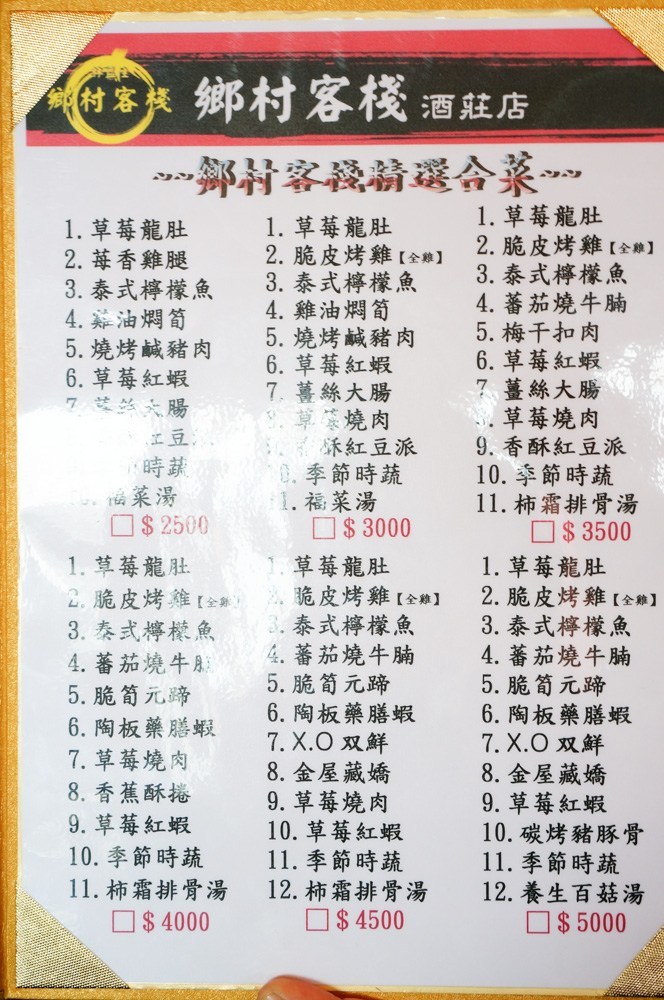 鄉村客棧
鄉村客棧 酒莊店
~~鄉村客棧精選合菜~~
1.草莓龍肚
2.莓香雞腿
3.泰式檸檬魚
4.雞油燜筍
5.燒烤鹹豬肉
6.草莓紅蝦
7.薑絲大腸
紅豆
時蔬
福菜湯
□$2500
1.草莓龍肚
2.脆皮烤雞【全雞】
3.泰式檸檬魚
4.雞油燜筍
5.燒烤鹹豬肉
6.草莓紅蝦
7.薑絲大腸
草莓燒肉
酥紅豆派
季節時蔬
福菜湯
□$3000
1.草莓龍肚
2.脆皮烤雞【全雞】
3.泰式檸檬魚
4.蕃茄燒牛腩
5.梅干扣肉
6.草莓紅蝦
7.薑絲大腸
草莓燒肉
9.香酥紅豆派
10.季節時蔬
11.柿霜排骨湯
□$3500
1.草莓龍肚
2.脆皮烤雞【全雞】
3.泰式檸檬魚
4.蕃茄燒牛
5.脆筍元蹄
6.陶板藥膳蝦
7.草莓燒肉
8.香蕉酥捲
9.草莓紅蝦
10.季節時蔬
11.柿霜排骨湯
□$4000
1.草莓龍肚
2.脆皮烤雞【全雞】
3.泰式檸檬魚
4.蕃茄燒牛腩
5.脆筍元蹄
6.陶板藥膳蝦
7.X.O双鮮
8.金屋藏嬌
9.草莓燒肉
10.草莓紅蝦
11.季節時蔬
12.柿霜排骨湯
□$4500
1.草莓龍肚
2.脆皮烤雞【全雞】
3.泰式檸檬魚
4.蕃茄燒牛腩
5.脆筍元蹄
6.陶板藥膳蝦
7.X.O双鮮
8.金屋藏嬌
9.草莓紅蝦
10.碳烤豬豚骨
11.季節時蔬
12.養生百菇湯
□$5000